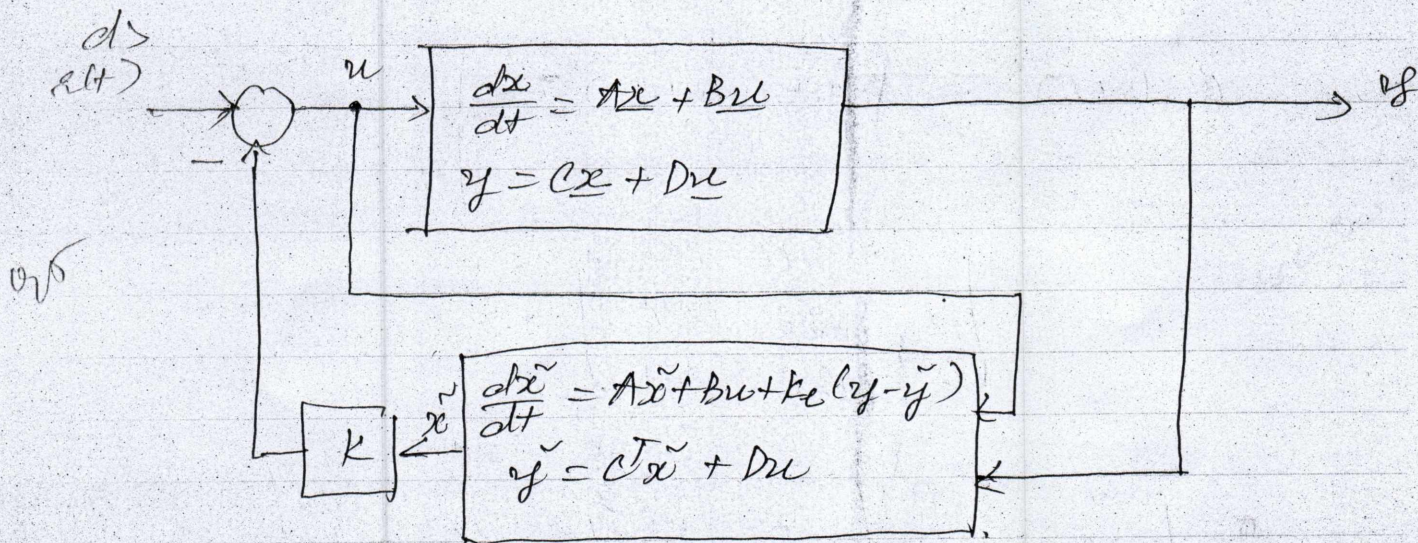 d>
r(t)
u
dx/dt = Ax + Bu
y = Cx + Du
y
−
K
x̃
dx̃/dt = Ax̃ + Bu + Ke (y - ỹ)
ỹ = Cᵀx̃ + Du